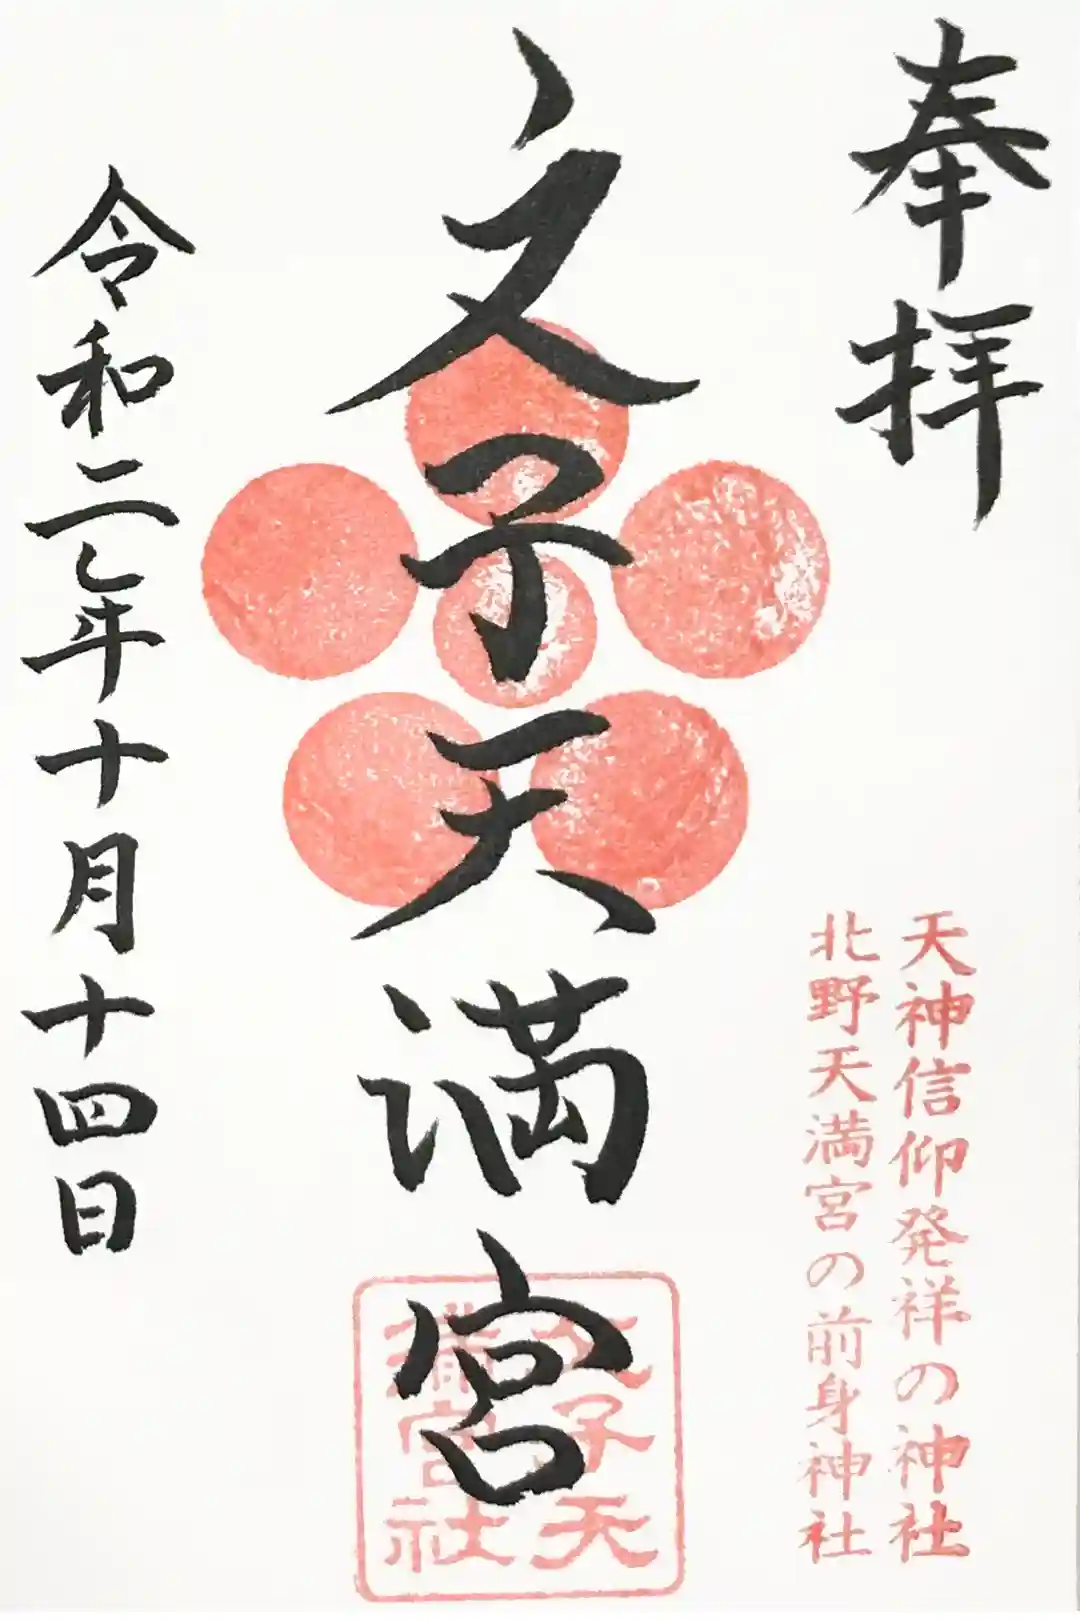 奉拝
天神信仰発祥の神社
北野天満宮の前身神社
文子天満宮
文子天
満宮社
令和二年十月十四日